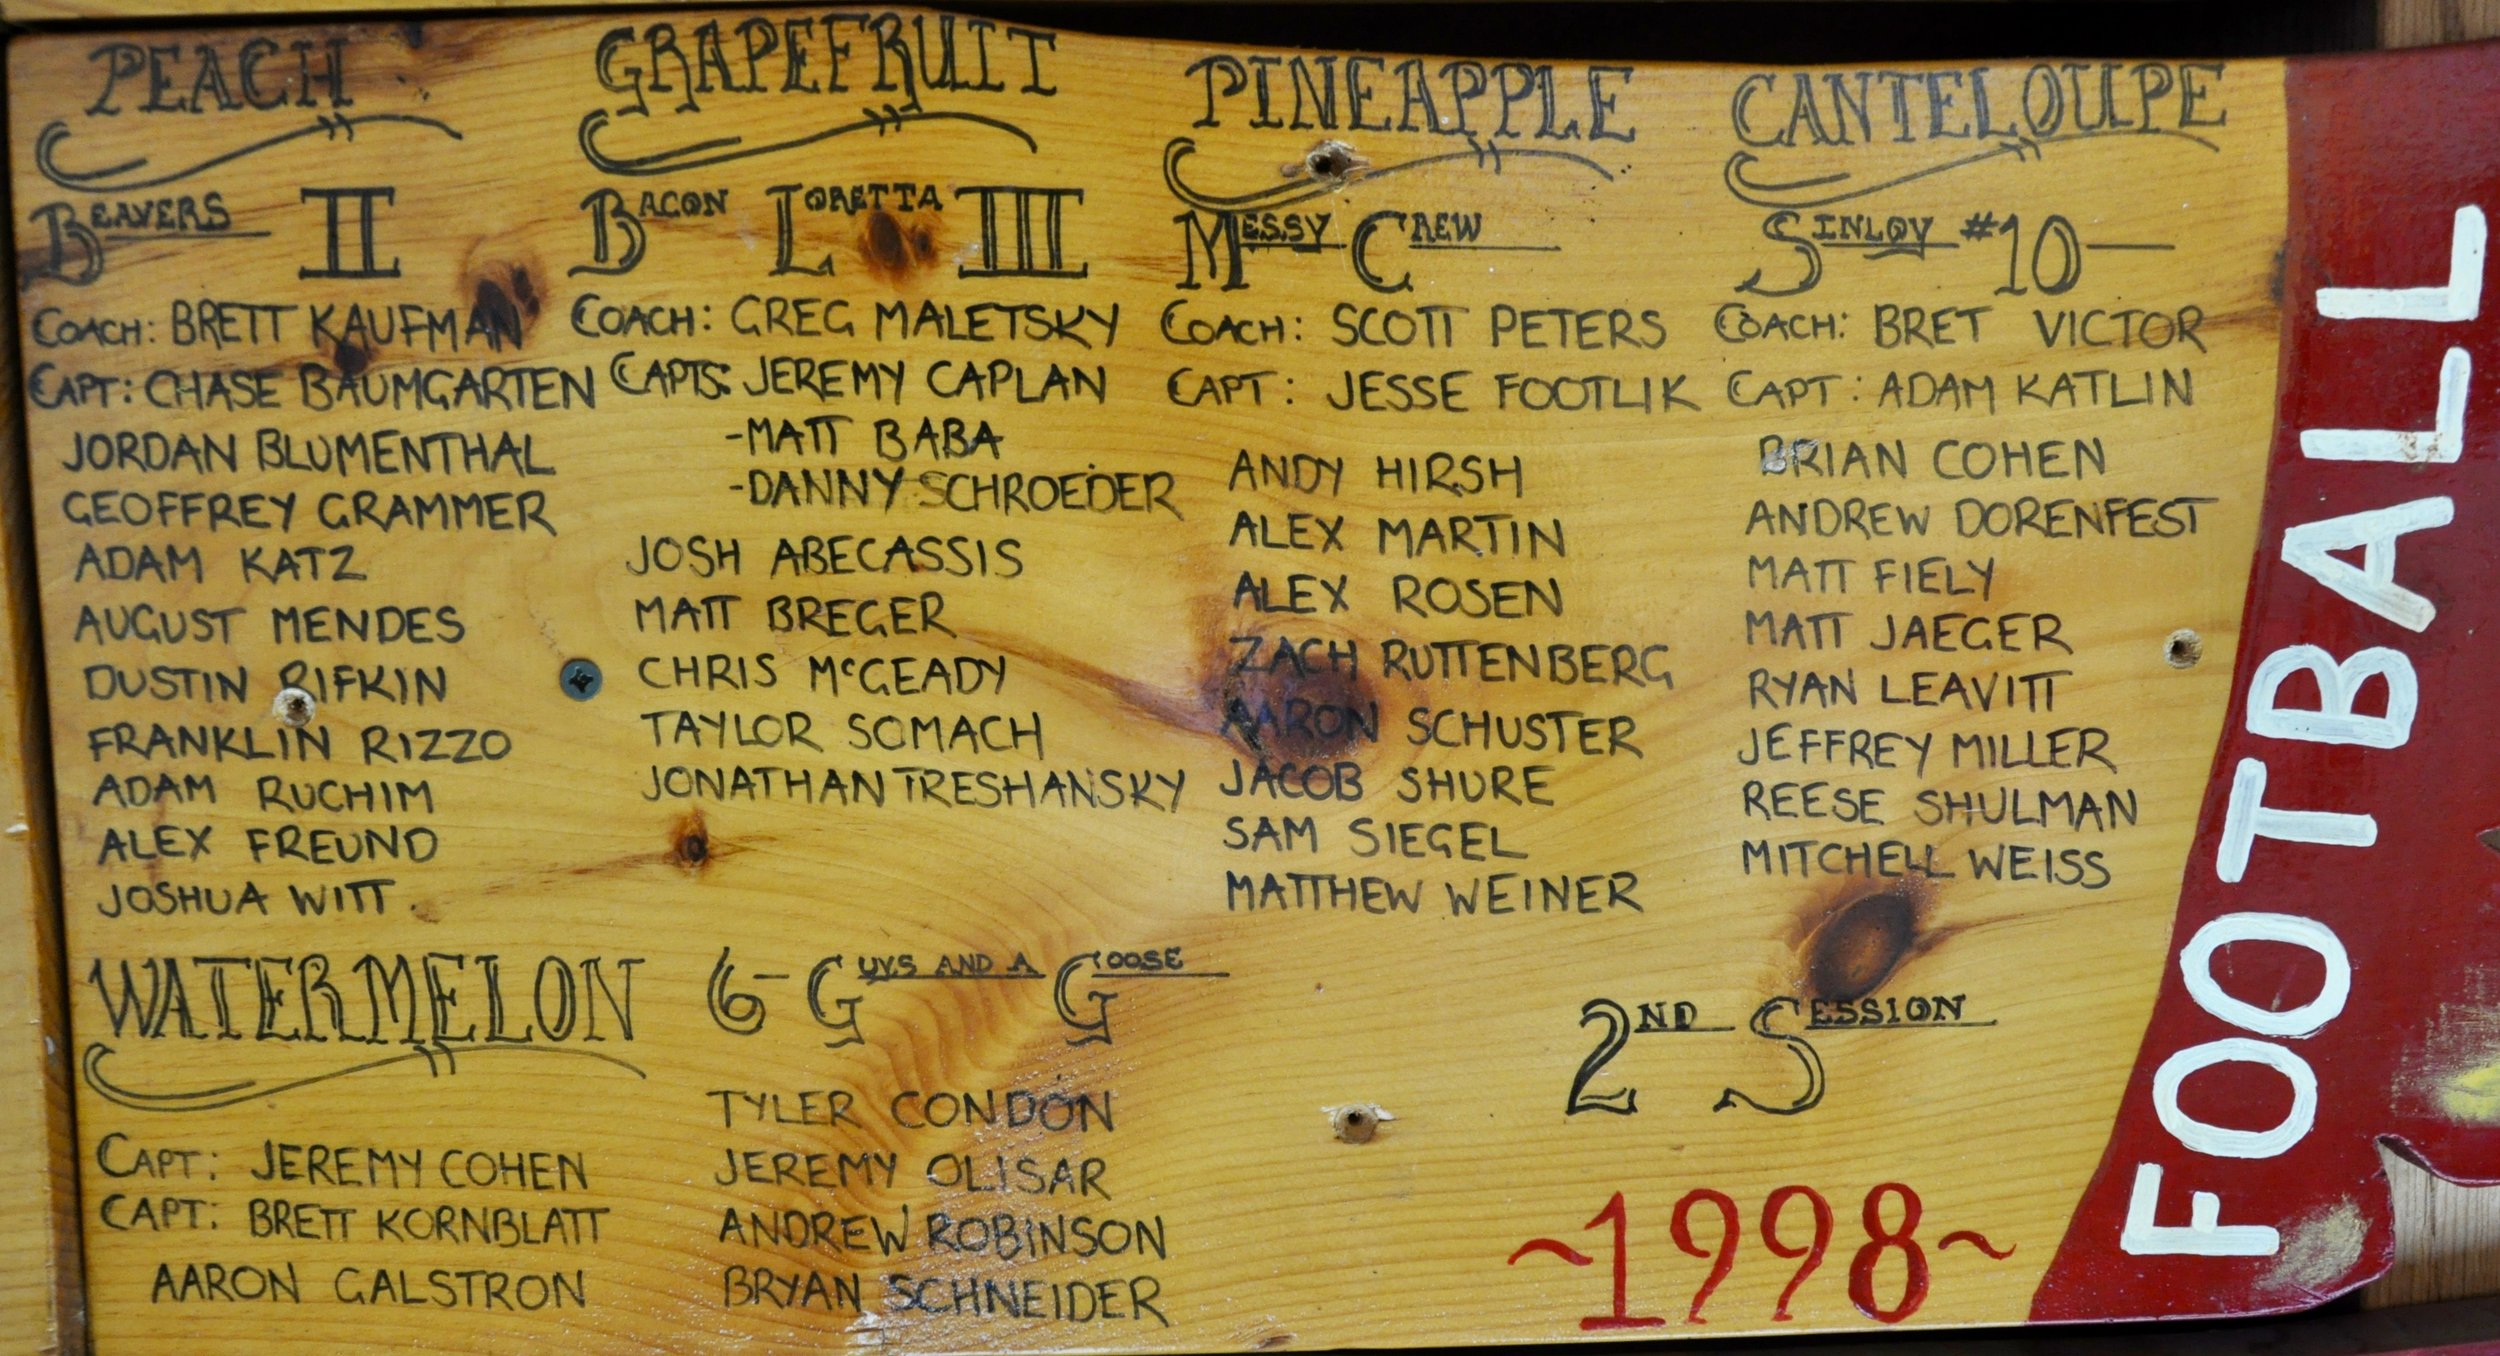 PEACH
BEAVERS II
COACH: BRETT KAUFMAN
CAPT: CHASE BAUMGARTEN
JORDAN BLUMENTHAL
GEOFFREY GRAMMER
ADAM KATZ
AUGUST MENDES
DUSTIN RIFKIN
FRANKLIN RIZZO
ADAM RUCHIM
ALEX FREUND
JOSHUA WITT
GRAPEFRUIT
BACON LORETTA III
COACH: GREG MALETSKY
CAPTS: JEREMY CAPLAN
-MATT BABA
-DANNY SCHROEDER
JOSH ABECASSIS
MATT BREGER
CHRIS McGEADY
TAYLOR SOMACH
JONATHAN TRESHANSKY
PINEAPPLE
MESSY CREW
COACH: SCOTT PETERS
CAPT: JESSE FOOTLIK
ANDY HIRSH
ALEX MARTIN
ALEX ROSEN
ZACH RUTTENBERG
AARON SCHUSTER
JACOB SHURE
SAM SIEGEL
MATTHEW WEINER
CANTELOUPE
SINLOV #10
COACH: BRET VICTOR
CAPT: ADAM KATLIN
BRIAN COHEN
ANDREW DORENFEST
MATT FIELY
MATT JAEGER
RYAN LEAVITT
JEFFREY MILLER
REESE SHULMAN
MITCHELL WEISS
WATERMELON 6-GUYS AND A GOOSE
CAPT: JEREMY COHEN
CAPT: BRETT KORNBLATT
AARON GALSTRON
TYLER CONDON
JEREMY OLISAR
ANDREW ROBINSON
BRYAN SCHNEIDER
2ND SESSION
~1998~
FOOTBALL